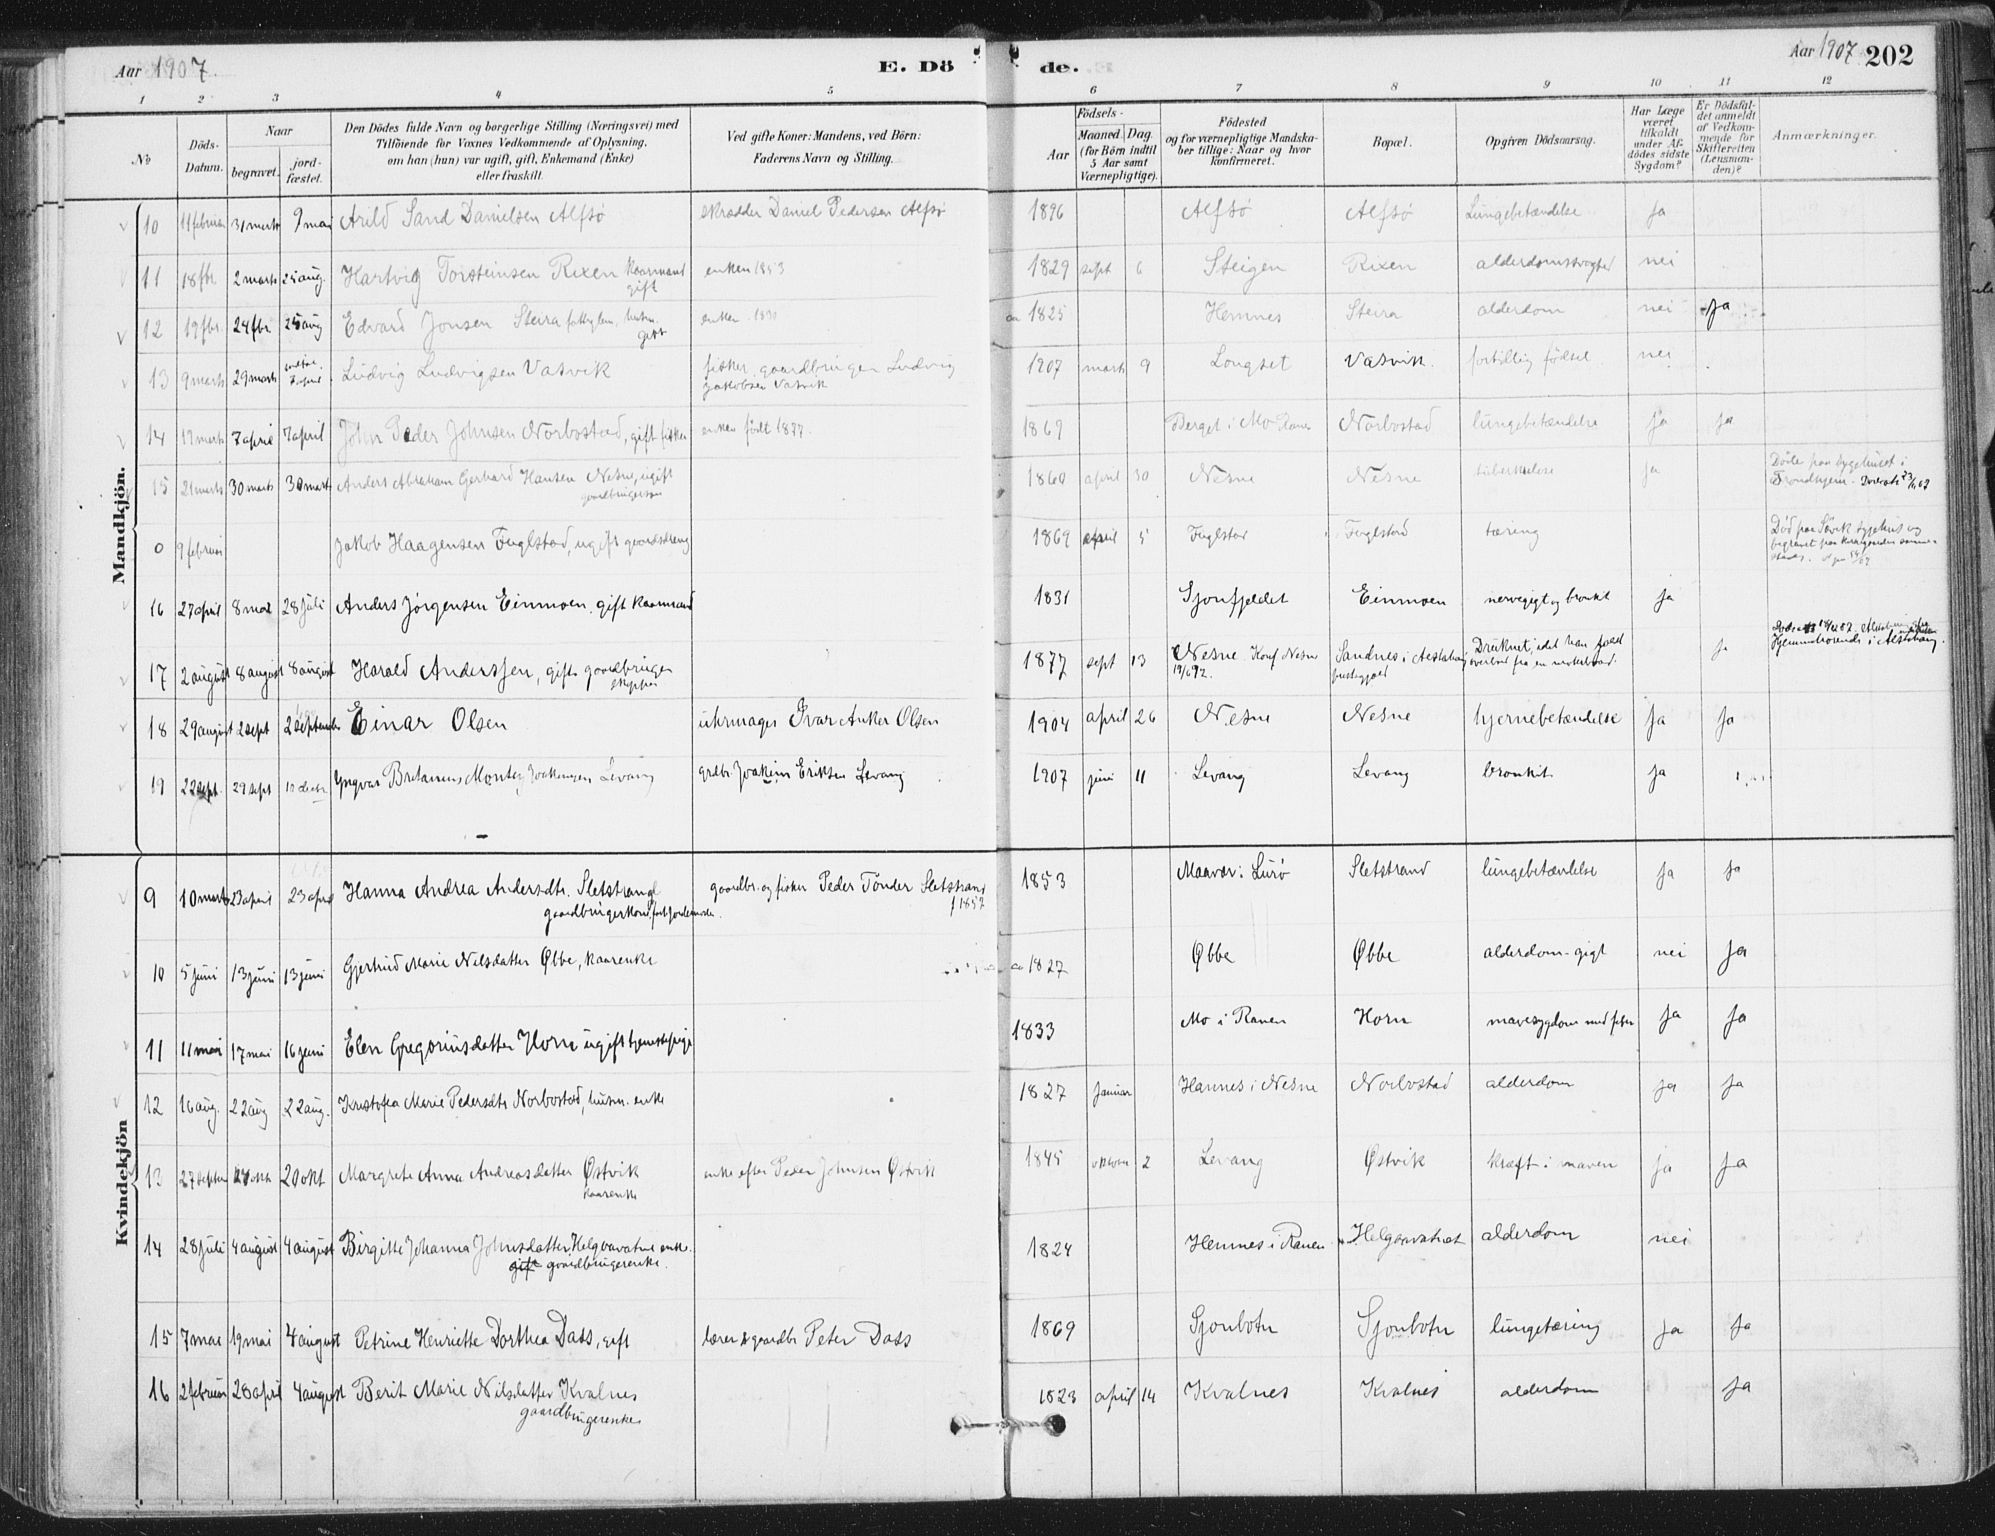 Aar 1907.
E. Dö de.
Aar 1907 202
1 2 3 4 5 6 7 8 9 10 11 12
№
Döds-Datum.
Naar
begravet.
jord-fæstet.
Den Dödes fulde Navn og borgerlige Stilling (Næringsvei) med
Tilföiende for Voxnes Vedkommende af Oplysning,
om han (hun) var ugift, gift, Enkemand (Enke)
eller fraskilt.
Ved gifte Koner: Mandens, ved Börn:
Faderens Navn og Stilling.
Födsels-
Aar
Maaned. Dag.
(for Börn indtil
5 Aar samt
Værnepligtige).
Födested
og for værnepligtige Mandska-
ber tillige: Naar og hvor
konfirmeret.
Bopæl.
Opgiven Dödsaarsag.
Har Læge
været
tilkaldt
under Af-
dödes sidste
Sygdom?
Er Dödsfal-
det anmeldt
af Vedkom-
mende for
Skifteretten
(Lensman-
den)?
Anmærkninger.
Mandkjön.
10 11 februar 31 marts 9 mai Arild Sand Danielsen Alfsö skrædder Daniel Pedersen Alfsö 1896 Alfsö Alfsö Lungebetændelse ja
11 18 fbr 2 marts 25 aug. Hartvig Torsteinsen Rixen kaarmand enken 1853 1829 sept 6 Steigen Rixen nei
gift
12 19 fbr. 24 fbr. 25 aug Edvard Jonsen Steira husm. enken ca 1825 Hemnes Steira alderdom nei ja
gift
13 9 marts 29 marts Ludvig Ludvigsen Vasvik fisker, gaardbruger Ludvig 1907 marts 9 Longset Vasvik. fortidlig födsel nei
Jakobsen Vasvik
14 7 april 7 april John Peder Johnsen Norbostad, gift fisker enken födt 1877. 1869 Berget i Mo Ranen Norbostad lungebetændelse ja ja
15 21 marts 30 marts 30 marts Anders Abraham Gerhard Hansen Nesne, ugift 1860 april 30 Nesne Nesne tuberkulose ja Döde paa sygehuset i
gaardbrugersön Trondhjem.
0 9 februar Jakob Haagensen Fuglstad, ugift 1869 april 5 Fuglstad Fuglstad tæring Död paa Sövik sygehus og
begravet paa kirkegaarden samme-
steds.
16 27 april 8 mai 28 juli Anders Jörgensen Einmoen. gift kaarmand 1831 Sjonfjeldet Einmoen nervegigt og bronkit ja
17 2 august 8 august 8 august Harald Anderssen, gift gaardbruger 1877 sept 13 Nesne Konf Nesne Sandnes i Alstahaug Druknet, idet han faldt ja Hjemmehörende i Alstahaug.
skipper 19/6 92. prestegjæld overbord fra en motorbaad.
18 29 august 2 sept 2 september Einar Olsen uhrmager Ivar Anker Olsen 1904 april 26 Nesne Nesne hjernebetændelse ja ja
19 22 sept. 29 sept Yngvar Joakimsen Levang grdbr. Joakim Eriksen Levang 1907 juni 11 Levang Levang bronkit ja
Kvindekjön
9 10 marts 23 april 23 april Hanna Andrea Andersdtr. Sletstrand gaardbr. og fisker Peder Tönder Sletstrand 1853 Maavær i Lurö Sletstrand lungebetændelse ja ja
gaardbrugerkone, fort. jordemoder. f 1857
10 5 juni 13 juni 13 juni Gjertrud Marie Nilsdatter Øbbe, kaarenke ca 1827 Øbbe Øbbe alderdom-gigt nei ja
11 11 mai 17 mai 16 juni Elen Gregoriusdatter Horn ugift tjenestepige 1833 Mo i Ranen Horn mavesygdom med feber ja ja
12 16 aug. 22 aug 22 aug. Kristofa Marie Pedersdtr Norbostad, husm. enke 1827 Januar Hannes i Nesne Norbostad alderdom ja ja
13 27 septbr 20 okt Margrete Anna Andreasdatter Østvik enke efter Peder Johnsen Østvik 1845 oktober 2 Levang Østvik kræft i maven ja ja
kaarenke
14 28 juli 4 august 4 august Birgitte Johanna Johnsdatter, Helgaavatnet enke. 1824 Hemnes i Ranen Helgaavatnet alderdom nei
gift gaardbrugerenke.
15 7 mai 19 mai 4 august Petrine Henriette Dorthea Dass, gift lærer & gaardbr Peter Dass 1869 Sjonbotn Sjonbotn lungetæring ja ja
16 2 februar 28 april 4 august Berit Marie Nilsdatter Kvalnes 1823 april 14 Kvalnes Kvalnes alderdom ja
gaardbrugerenke